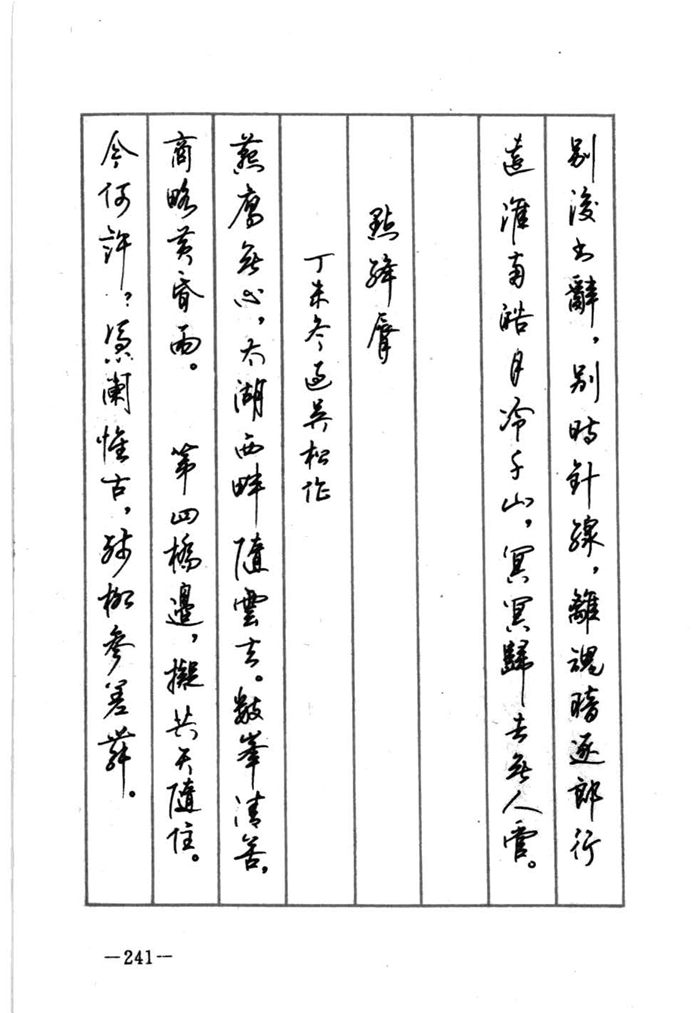 別後書辭，別時針線，離魂暗逐郎行
遠淮南皓月冷千山，冥冥歸去無人管。
點絳脣
丁未冬過吳松作
燕雁無心，太湖西畔隨雲去。數峯清苦，
商略黃昏雨。 第四橋邊，擬共天隨住。
今何許？憑闌懷古，殘柳參差舞。
—241—